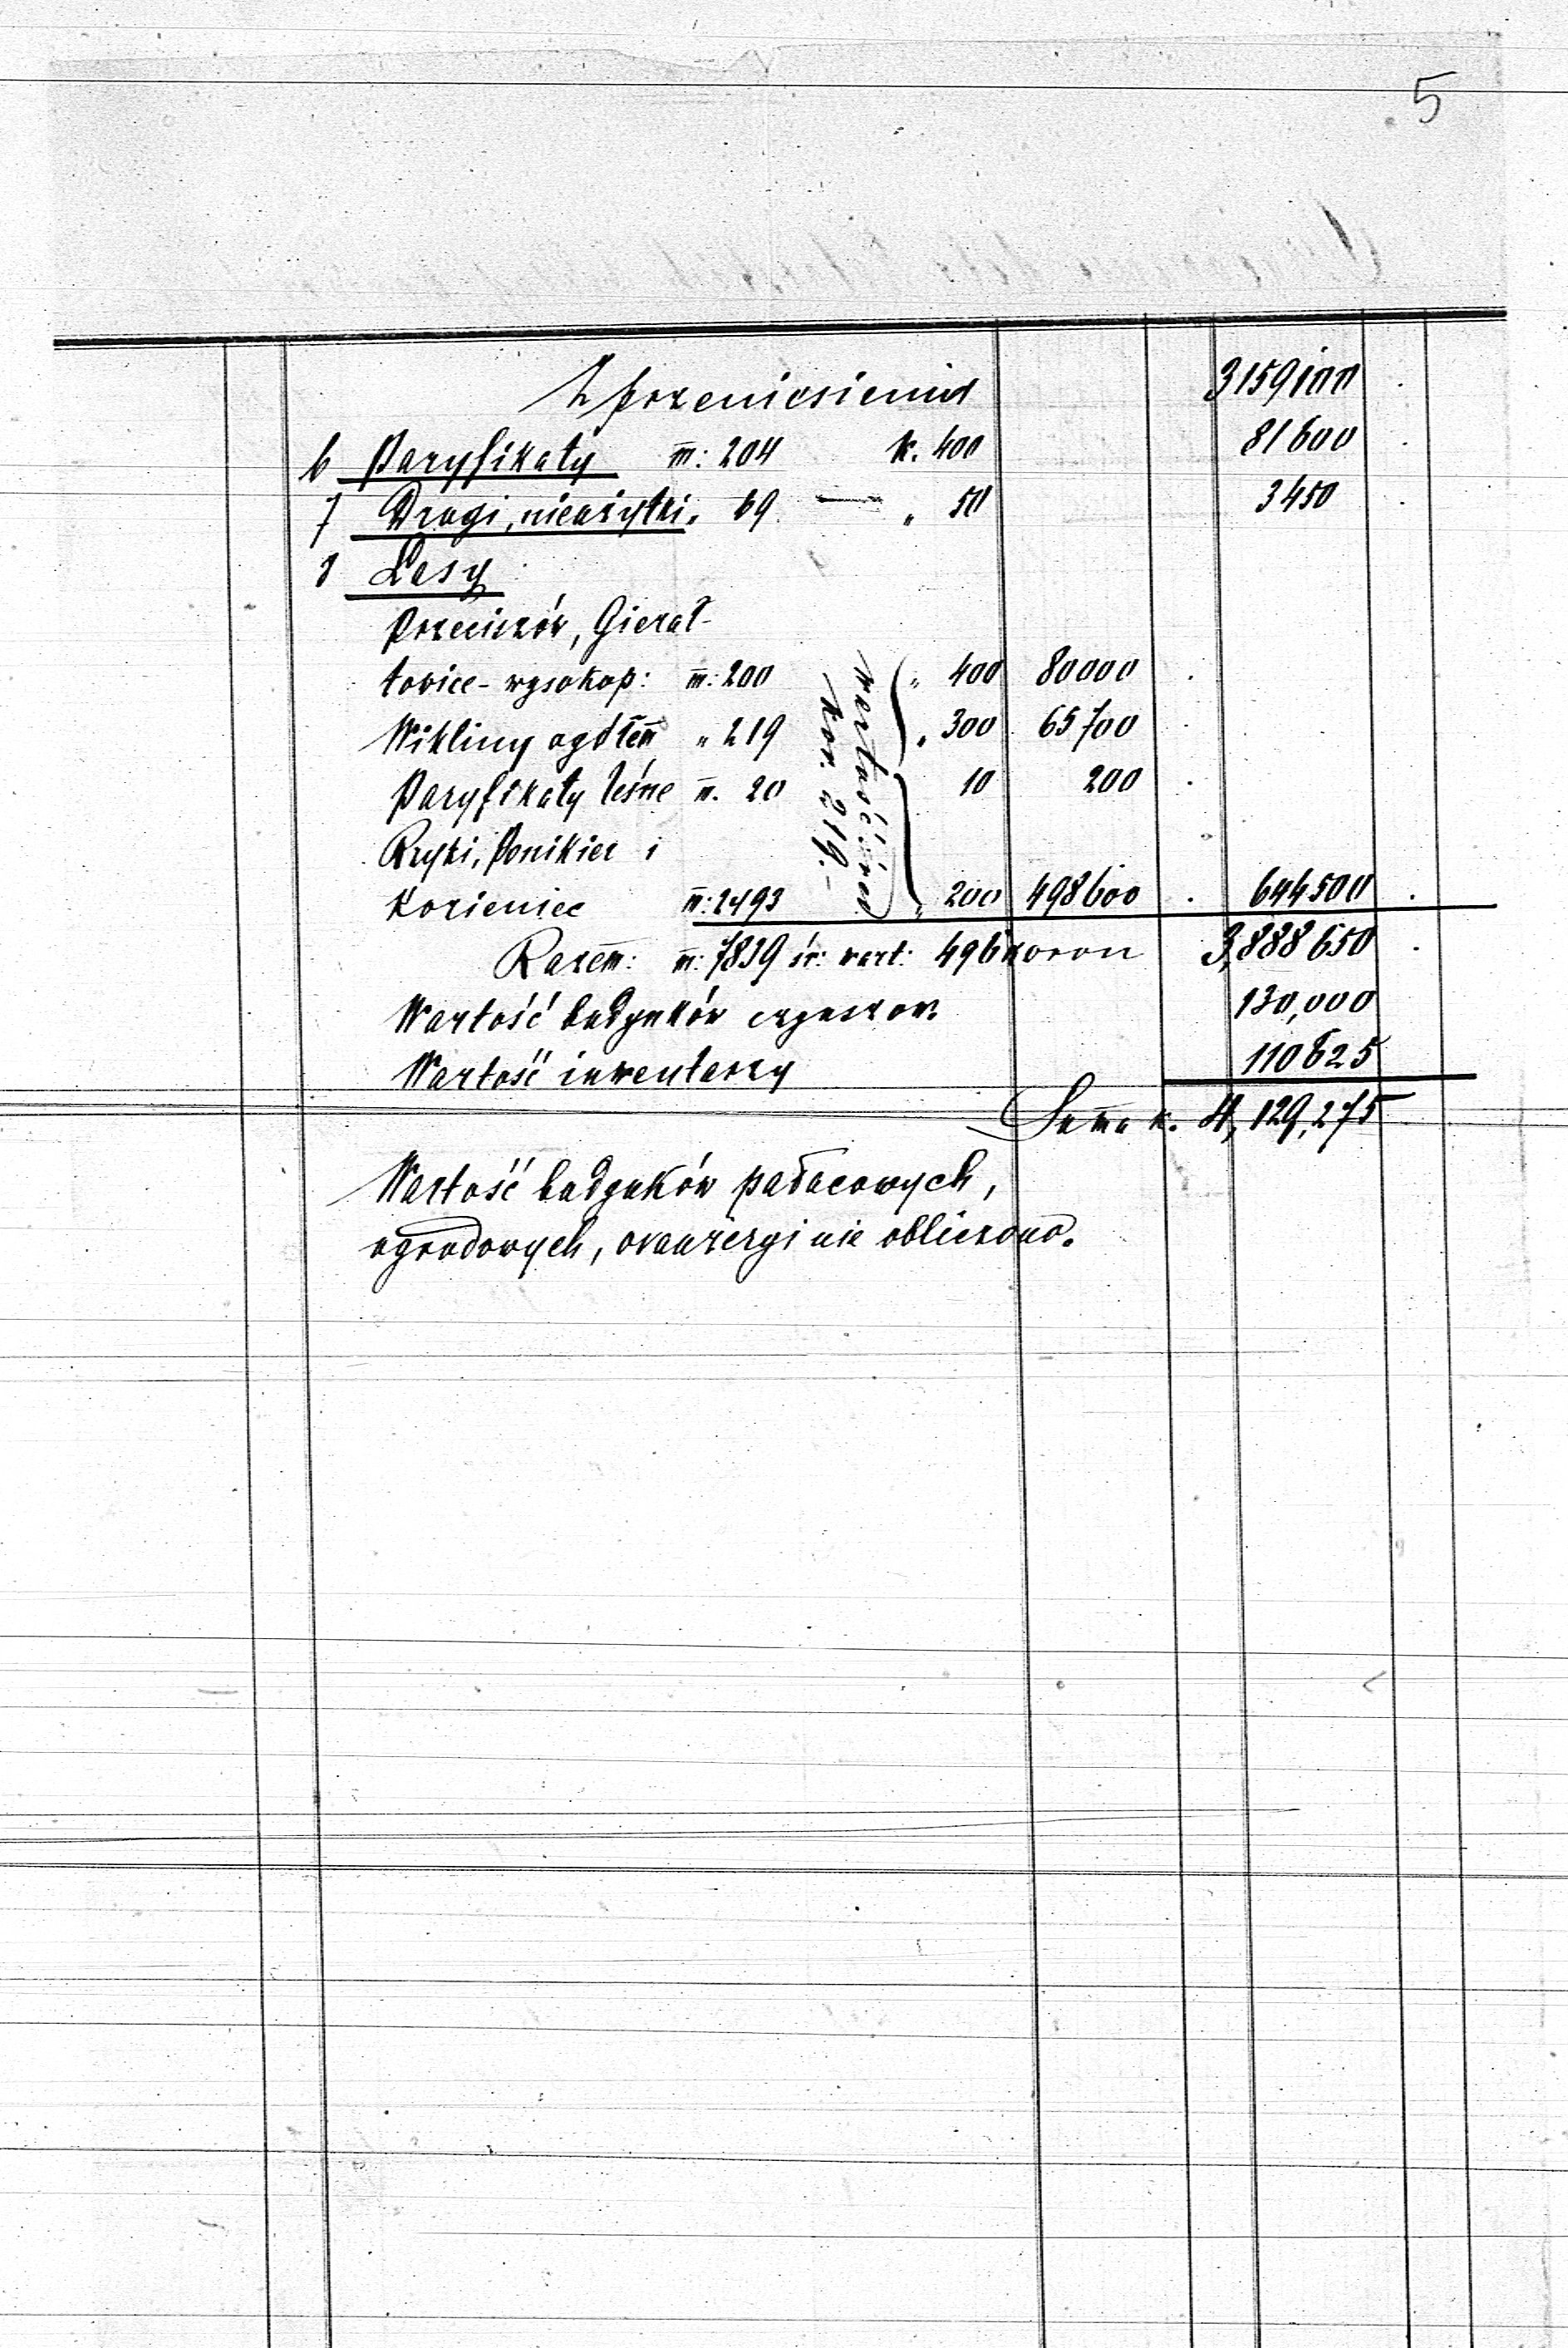 5
Z przeniesienia 3159100 .
6 Paryfikaty m: 204 K. 400 81600 .
7 Drogi, nieużytki. 69 — " 50 3450 .
8 Lasy
Przeciszów, Gierał-
towice - wysokop: m: 200 " 400 80000 .
Wikliny ogółem " 219 " 300 65700 .
Paryfikaty leśne m. 20 10 200 .
Rzyki, Ponikiew i
Kozieniec m: 2493 " 200 498600 . 644500 .
wartość śred.
kor. 219.-
Razem: m: 7839 śr: wart: 496 koron 3,888650 .
Wartość budynków czynszow. 130,000
Wartość inwentarzy 110625
Suma k. 4,129,275
Wartość budynków pałacowych,
ogrodowych, oranżeryi nie obliczono.